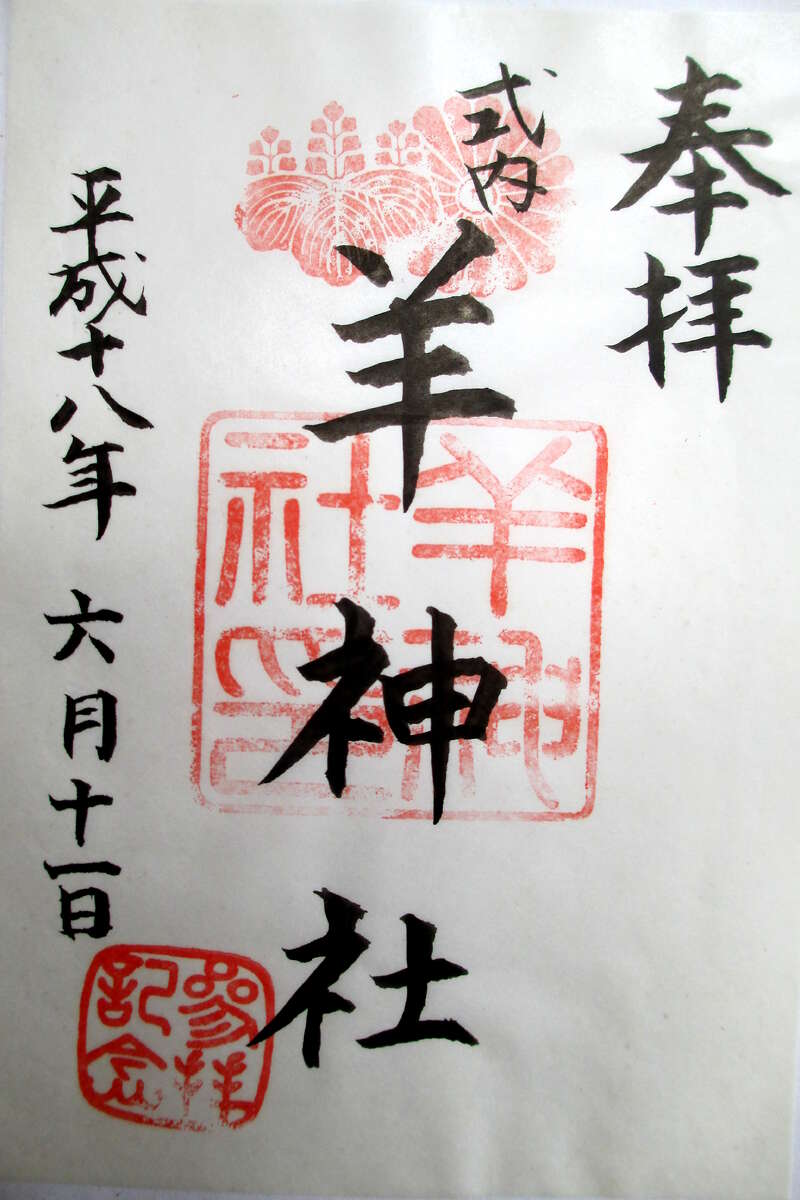 奉拝
式内
羊神社
羊神社印
平成十八年 六月十一日
参拝記念